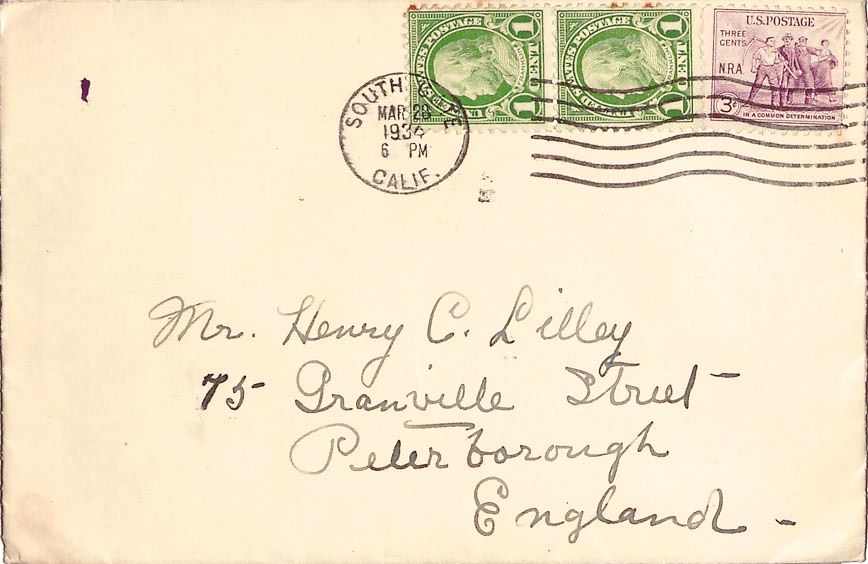 U.S.POSTAGE
THREE CENTS
N.R.A.
3¢
IN A COMMON DETERMINATION
STATES POSTAGE
1 CENT 1
STATES POSTAGE
1 CENT 1
SOUTH GATE
MAR 28
1934
6 PM
CALIF.
Mr. Henry C. Lilley
75 Granville Street -
Peterborough
England -